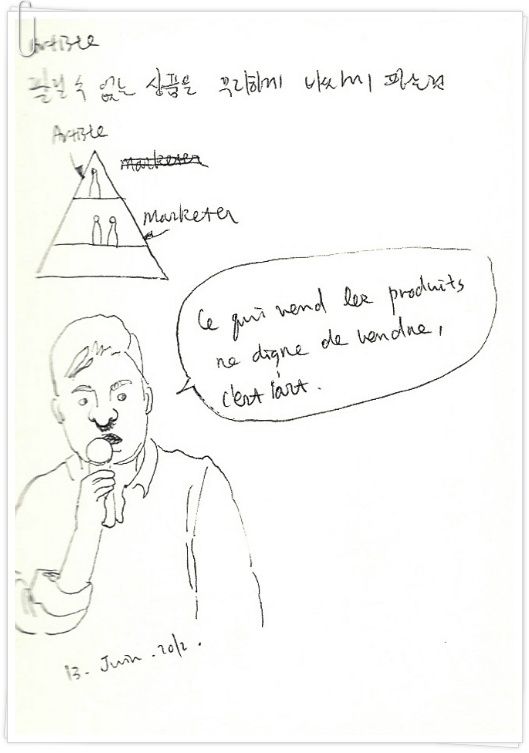 Artiste
팔릴 수 없는 상품을 무리하게
Artiste
Marketer
Marketer
Ce qui vend les produits
ne digne de vendre,
c'est l'art.
13. Juin. 2012.